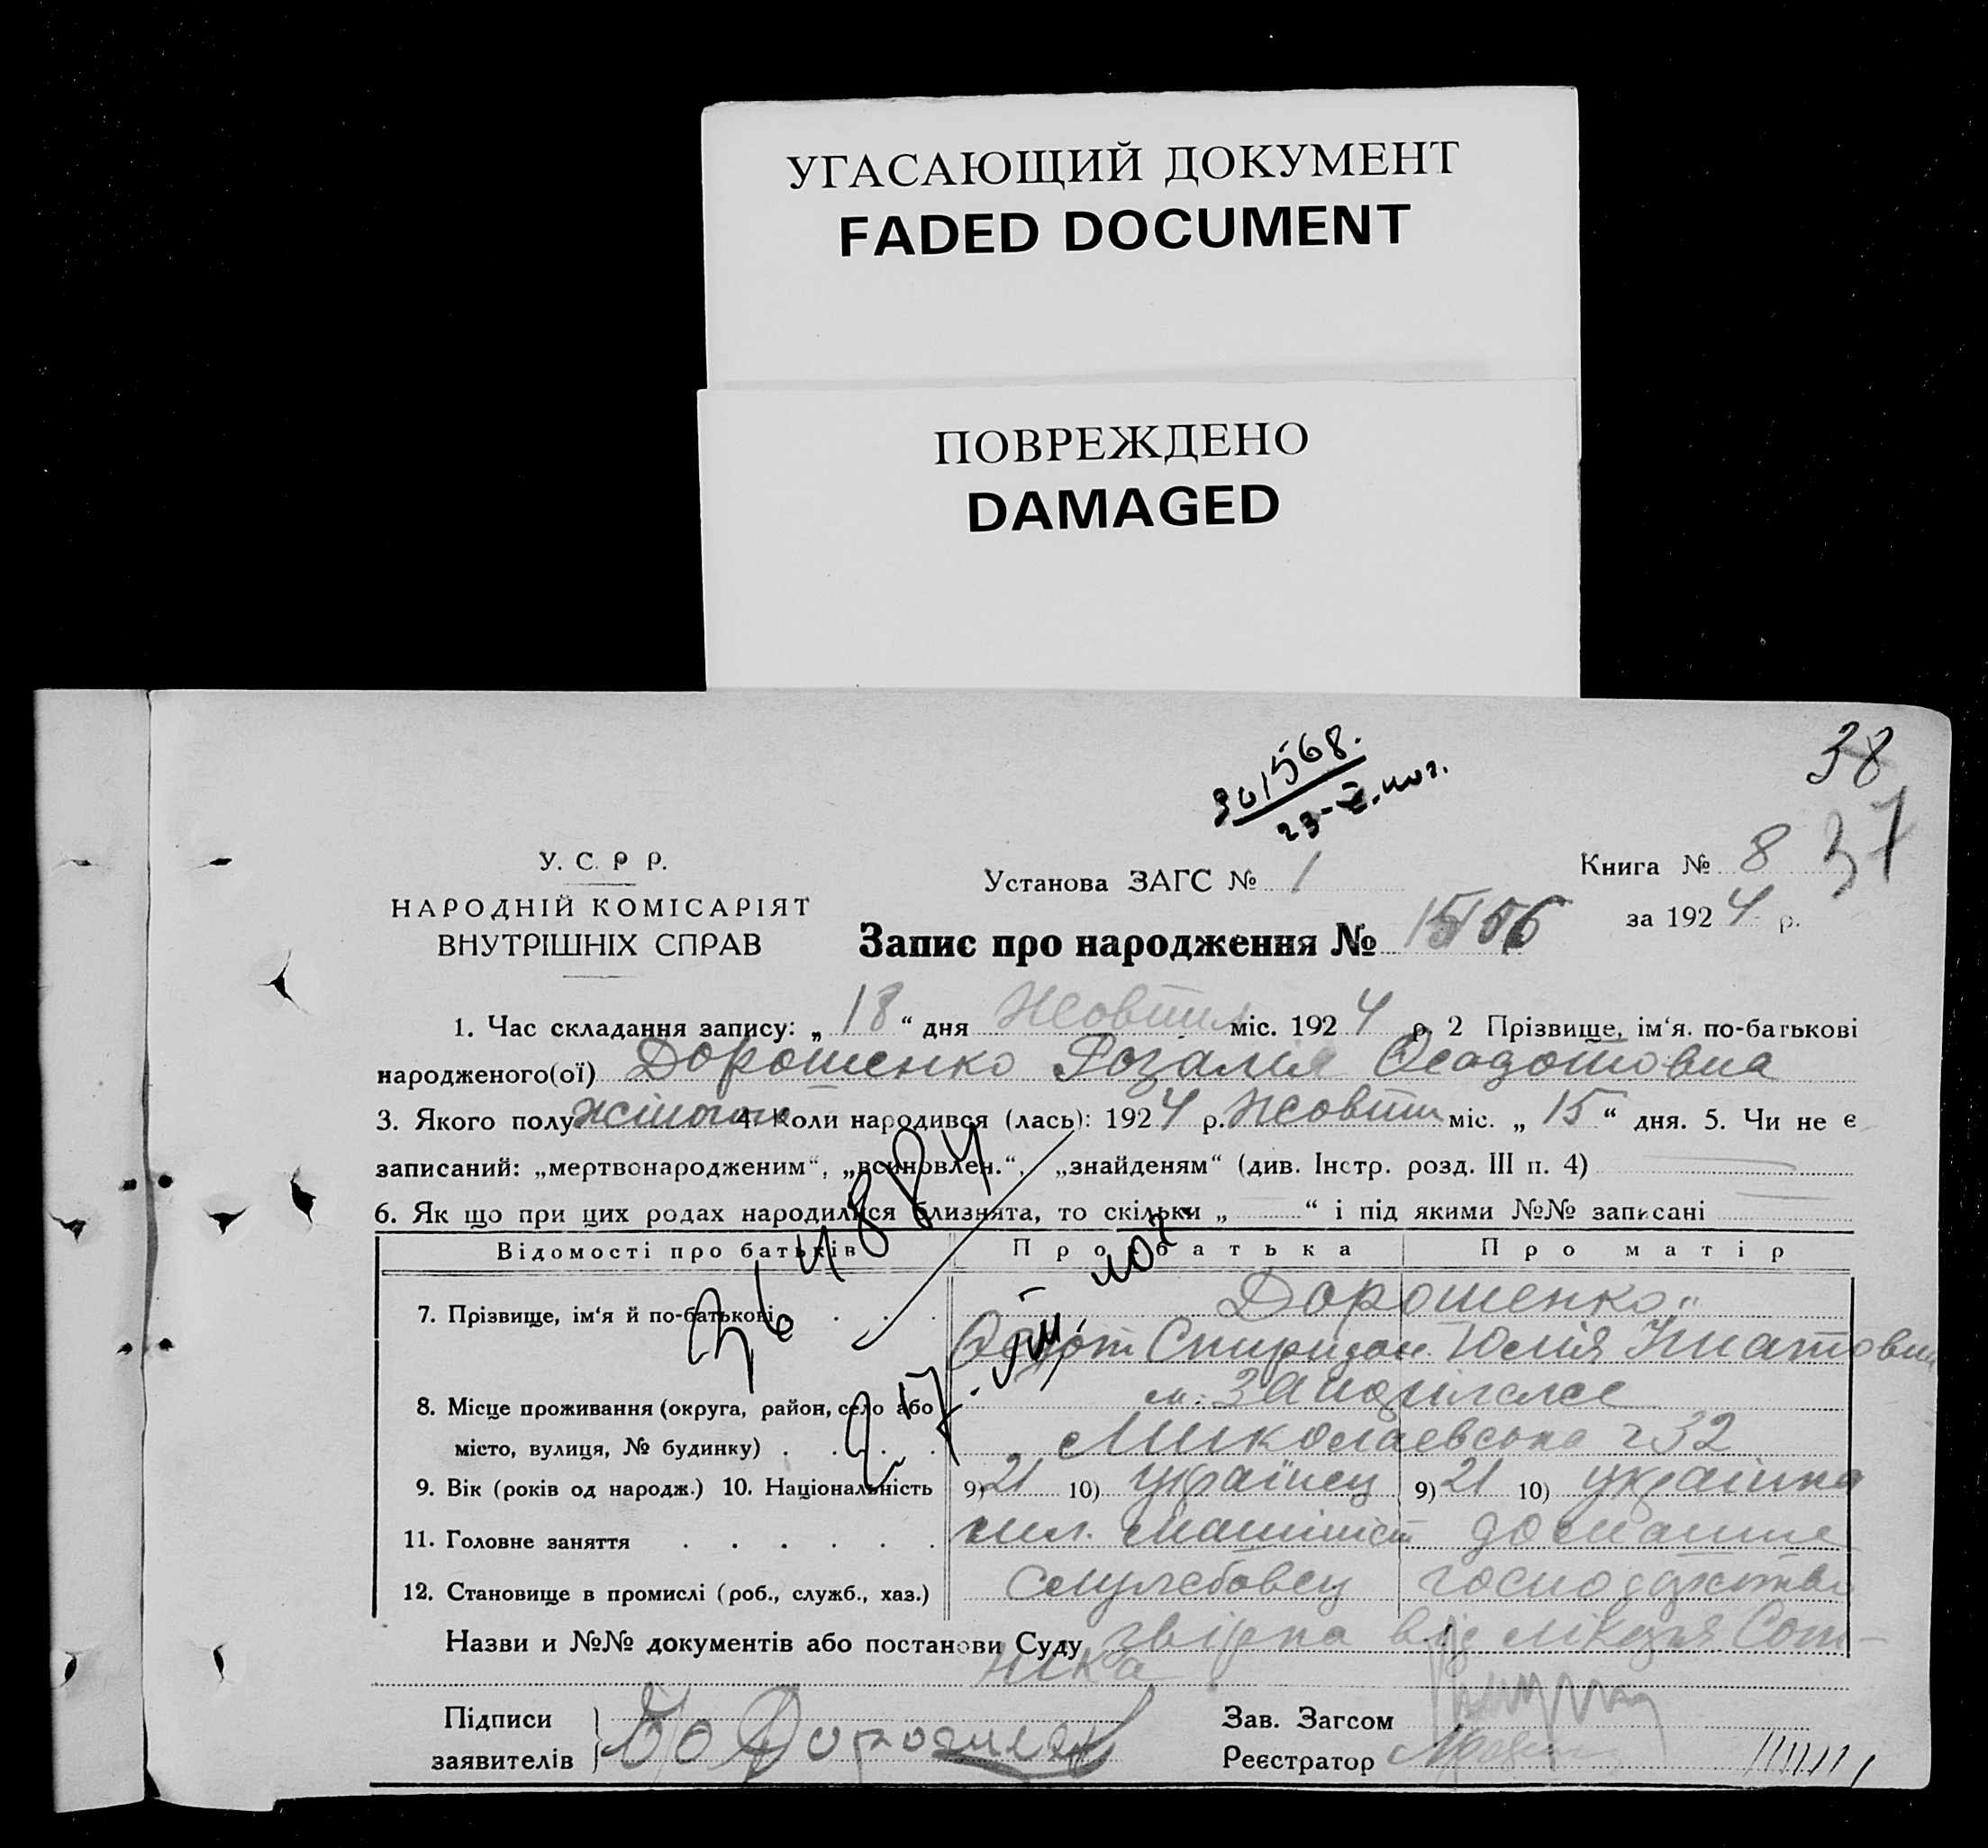 УГАСАЮЩИЙ ДОКУМЕНТ
FADED DOCUMENT
ПОВРЕЖДЕНО
DAMAGED
38
37
301568.
У. С. Р Р.
НАРОДНІЙ КОМІСАРІЯТ
ВНУТРІШНІХ СПРАВ
Установа ЗАГС № 1
Книга № 8
за 1924 р.
Запис про народження №
1. Час складання запису: „ 18 “ дня Жовтня міс. 1924 р. 2 Прізвище, ім‘я. по-батькові
народженого(ої) Дорошенко Розалія Феодотовна
3. Якого полу жіночого 4. Коли народився (лась): 1924 р. Жовтн міс. „ 15 “ дня. 5. Чи не є
записаний: „мертвонародженим“, „всиновлен.“, „знайденям“ (див. Інстр. розд. III п. 4)
6. Як що при цих родах народилися близнята, то скільки „ “ і під якими №№ записані
Відомості про батьків Про батька Про матір
7. Прізвище, ім‘я й по-батькові Дорошенко
Федот Спиридон. Юлія Гнатовна
8. Місце проживання (округа, район, село або
місто, вулиця, № будинку) Миколаевська 32
9. Вік (років од народж.) 10. Національність 9) 21 10) українец 9) 21 10) українка
11. Головне заняття машиніст домашнє
12. Становище в промислі (роб., служб., хаз.) служебовец господарство
Назви и №№ документів або постанови Суду від лікаря Сот-
ника
Підписи
заявителів
Зав. Загсом
Реєстратор